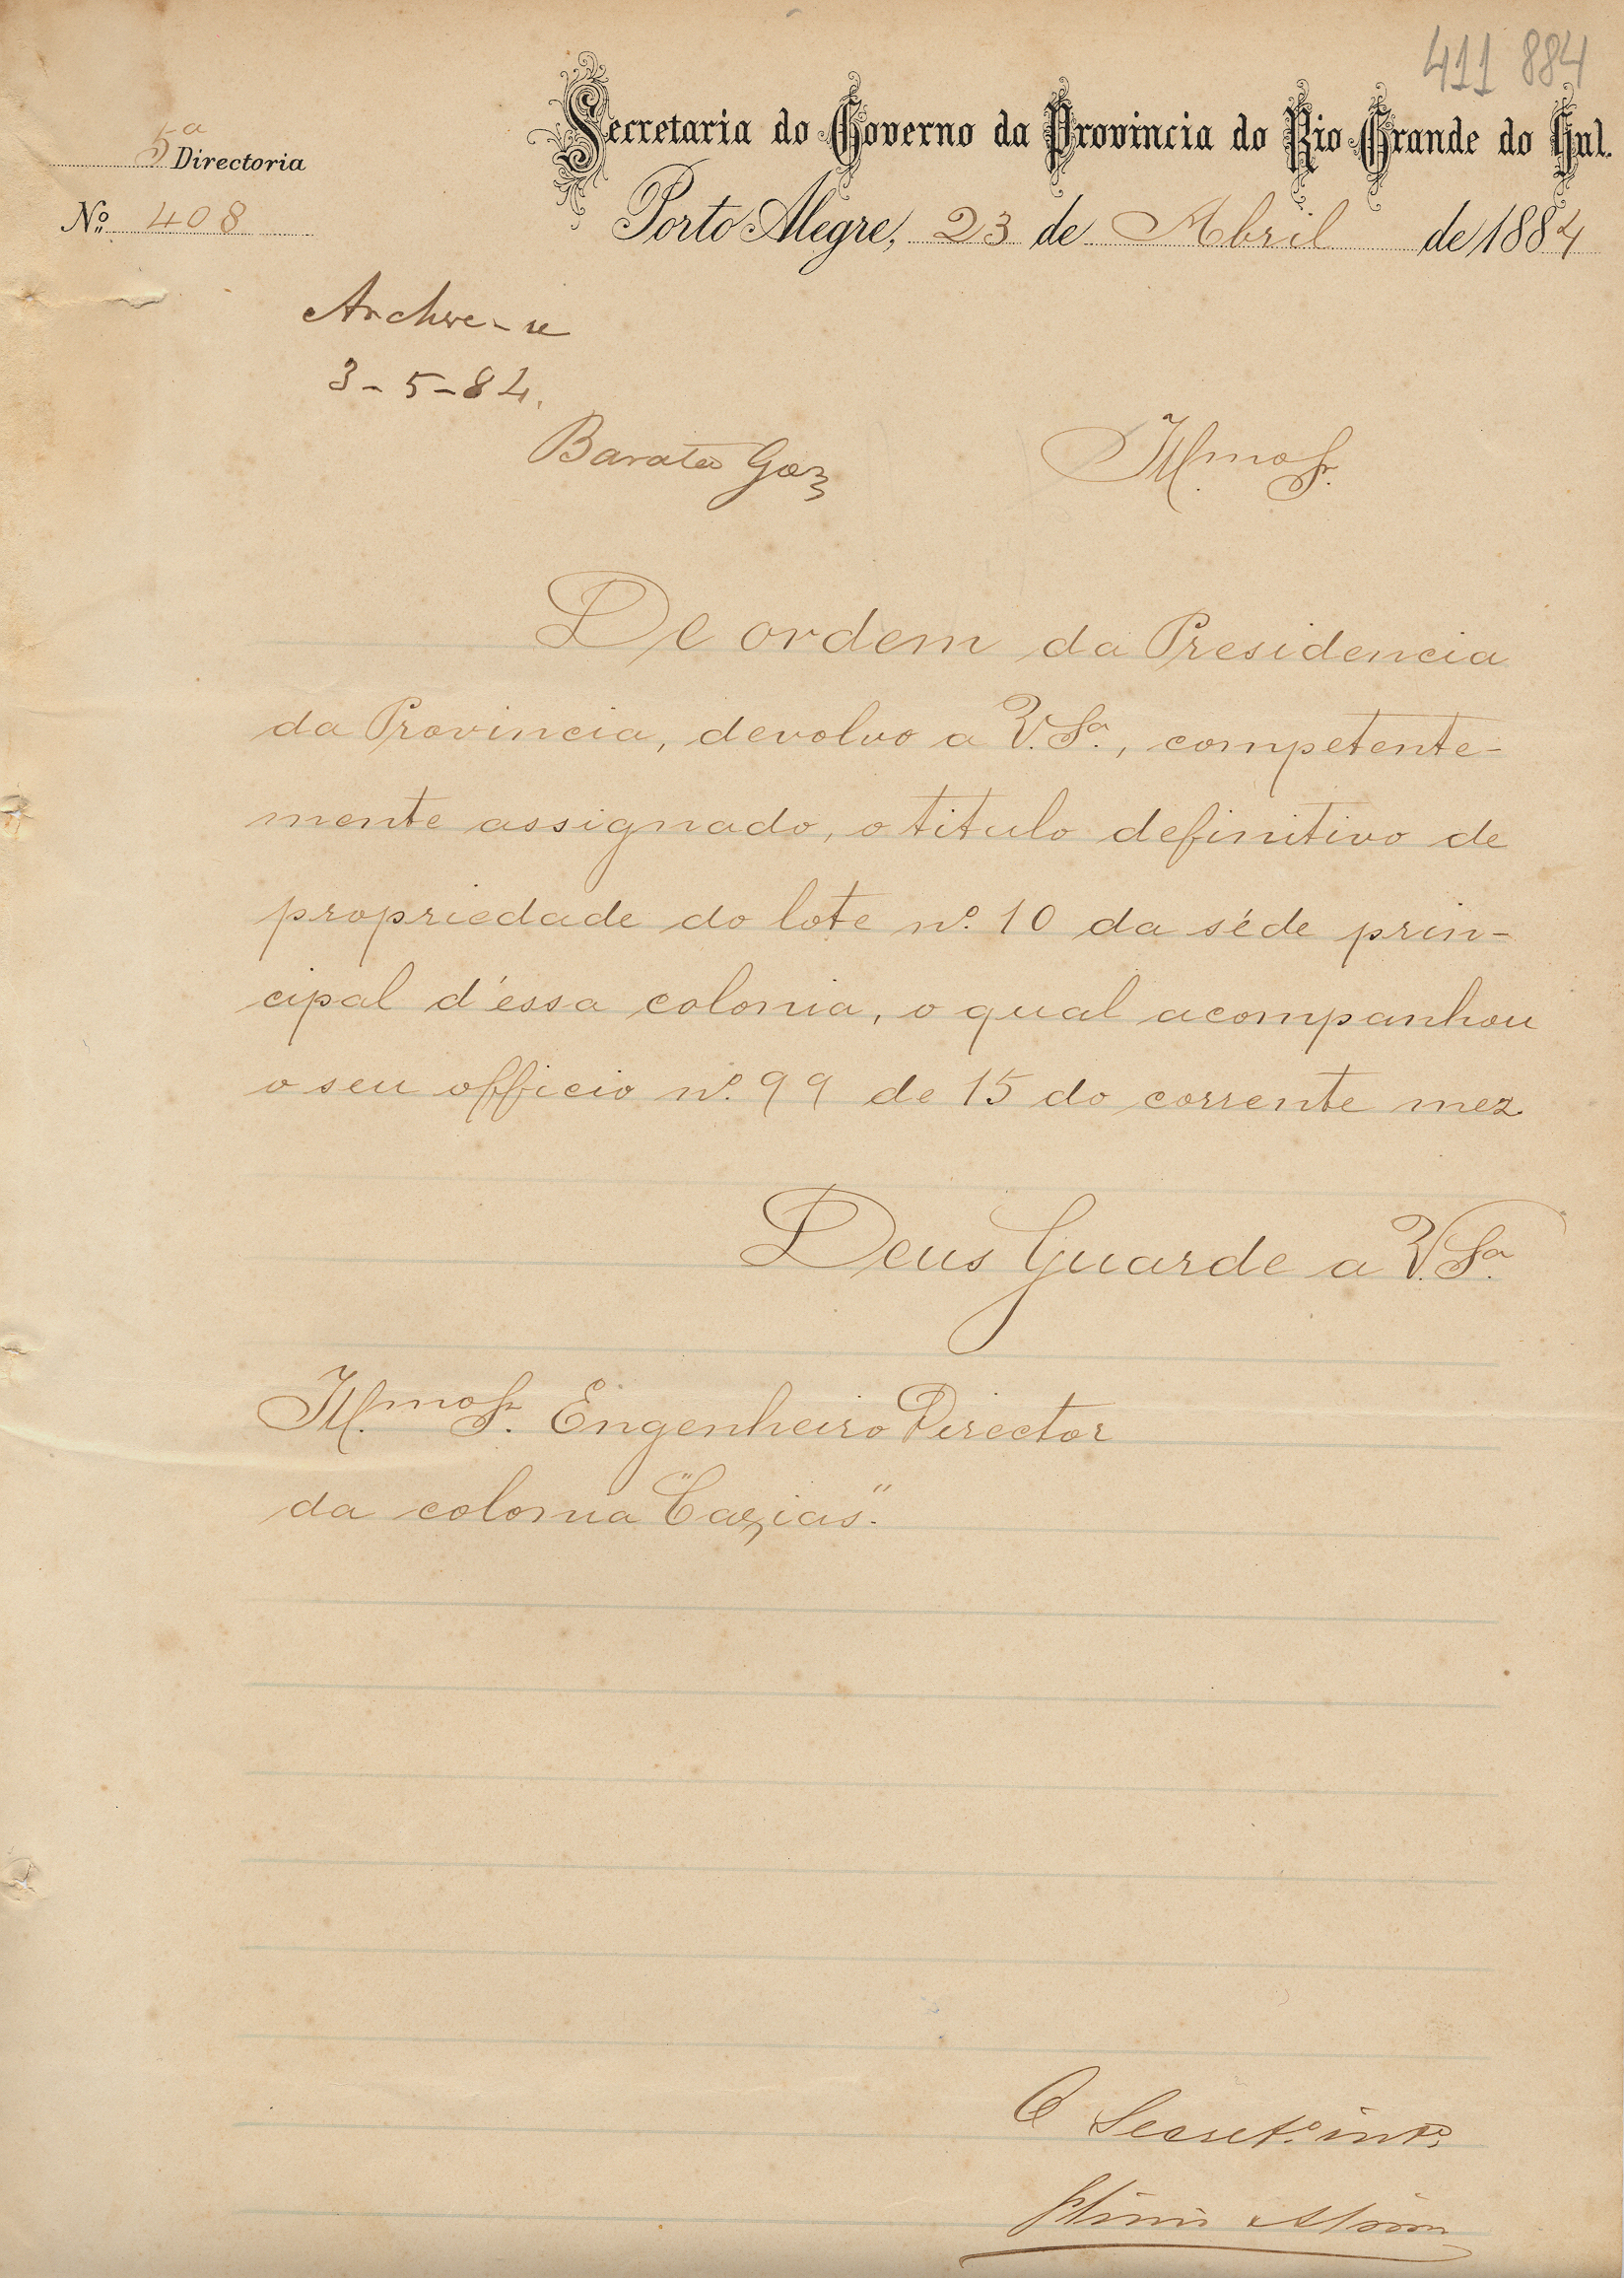 411 884
Secretaria do Governo da Provincia do Rio Grande do Sul.
5ª Directoria
Nº 408
Porto Alegre, 23 de Abril de 1884
Archive-se
3-5-84.
Barata Goz
Illmo Sr.
De ordem da Presidencia
da Provincia, devolvo a V. Sª., competente-
mente assignado, o titulo definitivo de
propriedade do lote nº. 10 da séde prin-
cipal d'essa colonia, o qual acompanhou
o seu officio nº. 99 de 15 do corrente mez.
Deus Guarde a V. Sª.
Ill.mo Sr. Engenheiro Director
da colonia "Caxias".
O Secretº. intº.